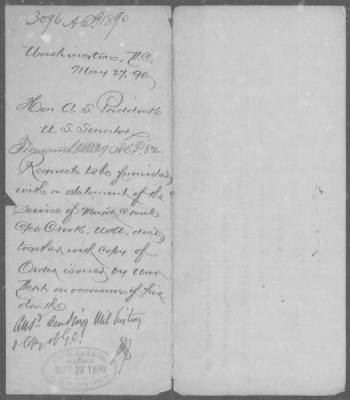 3096 ACP 1890
Washington, D.C.,
May 27, 90,
Hon A. S. Paddock
U. S. Senator
ACP. 82
Requests to be furnished
with a statement of the
service of Major Genl
Geo Crook, USA, decd,
together with copy of
Order issued by War
Dept on occasion of his
death
Ansd. sending Mil history
& copy of G.O.
RECEIVED
MAY 29 1890